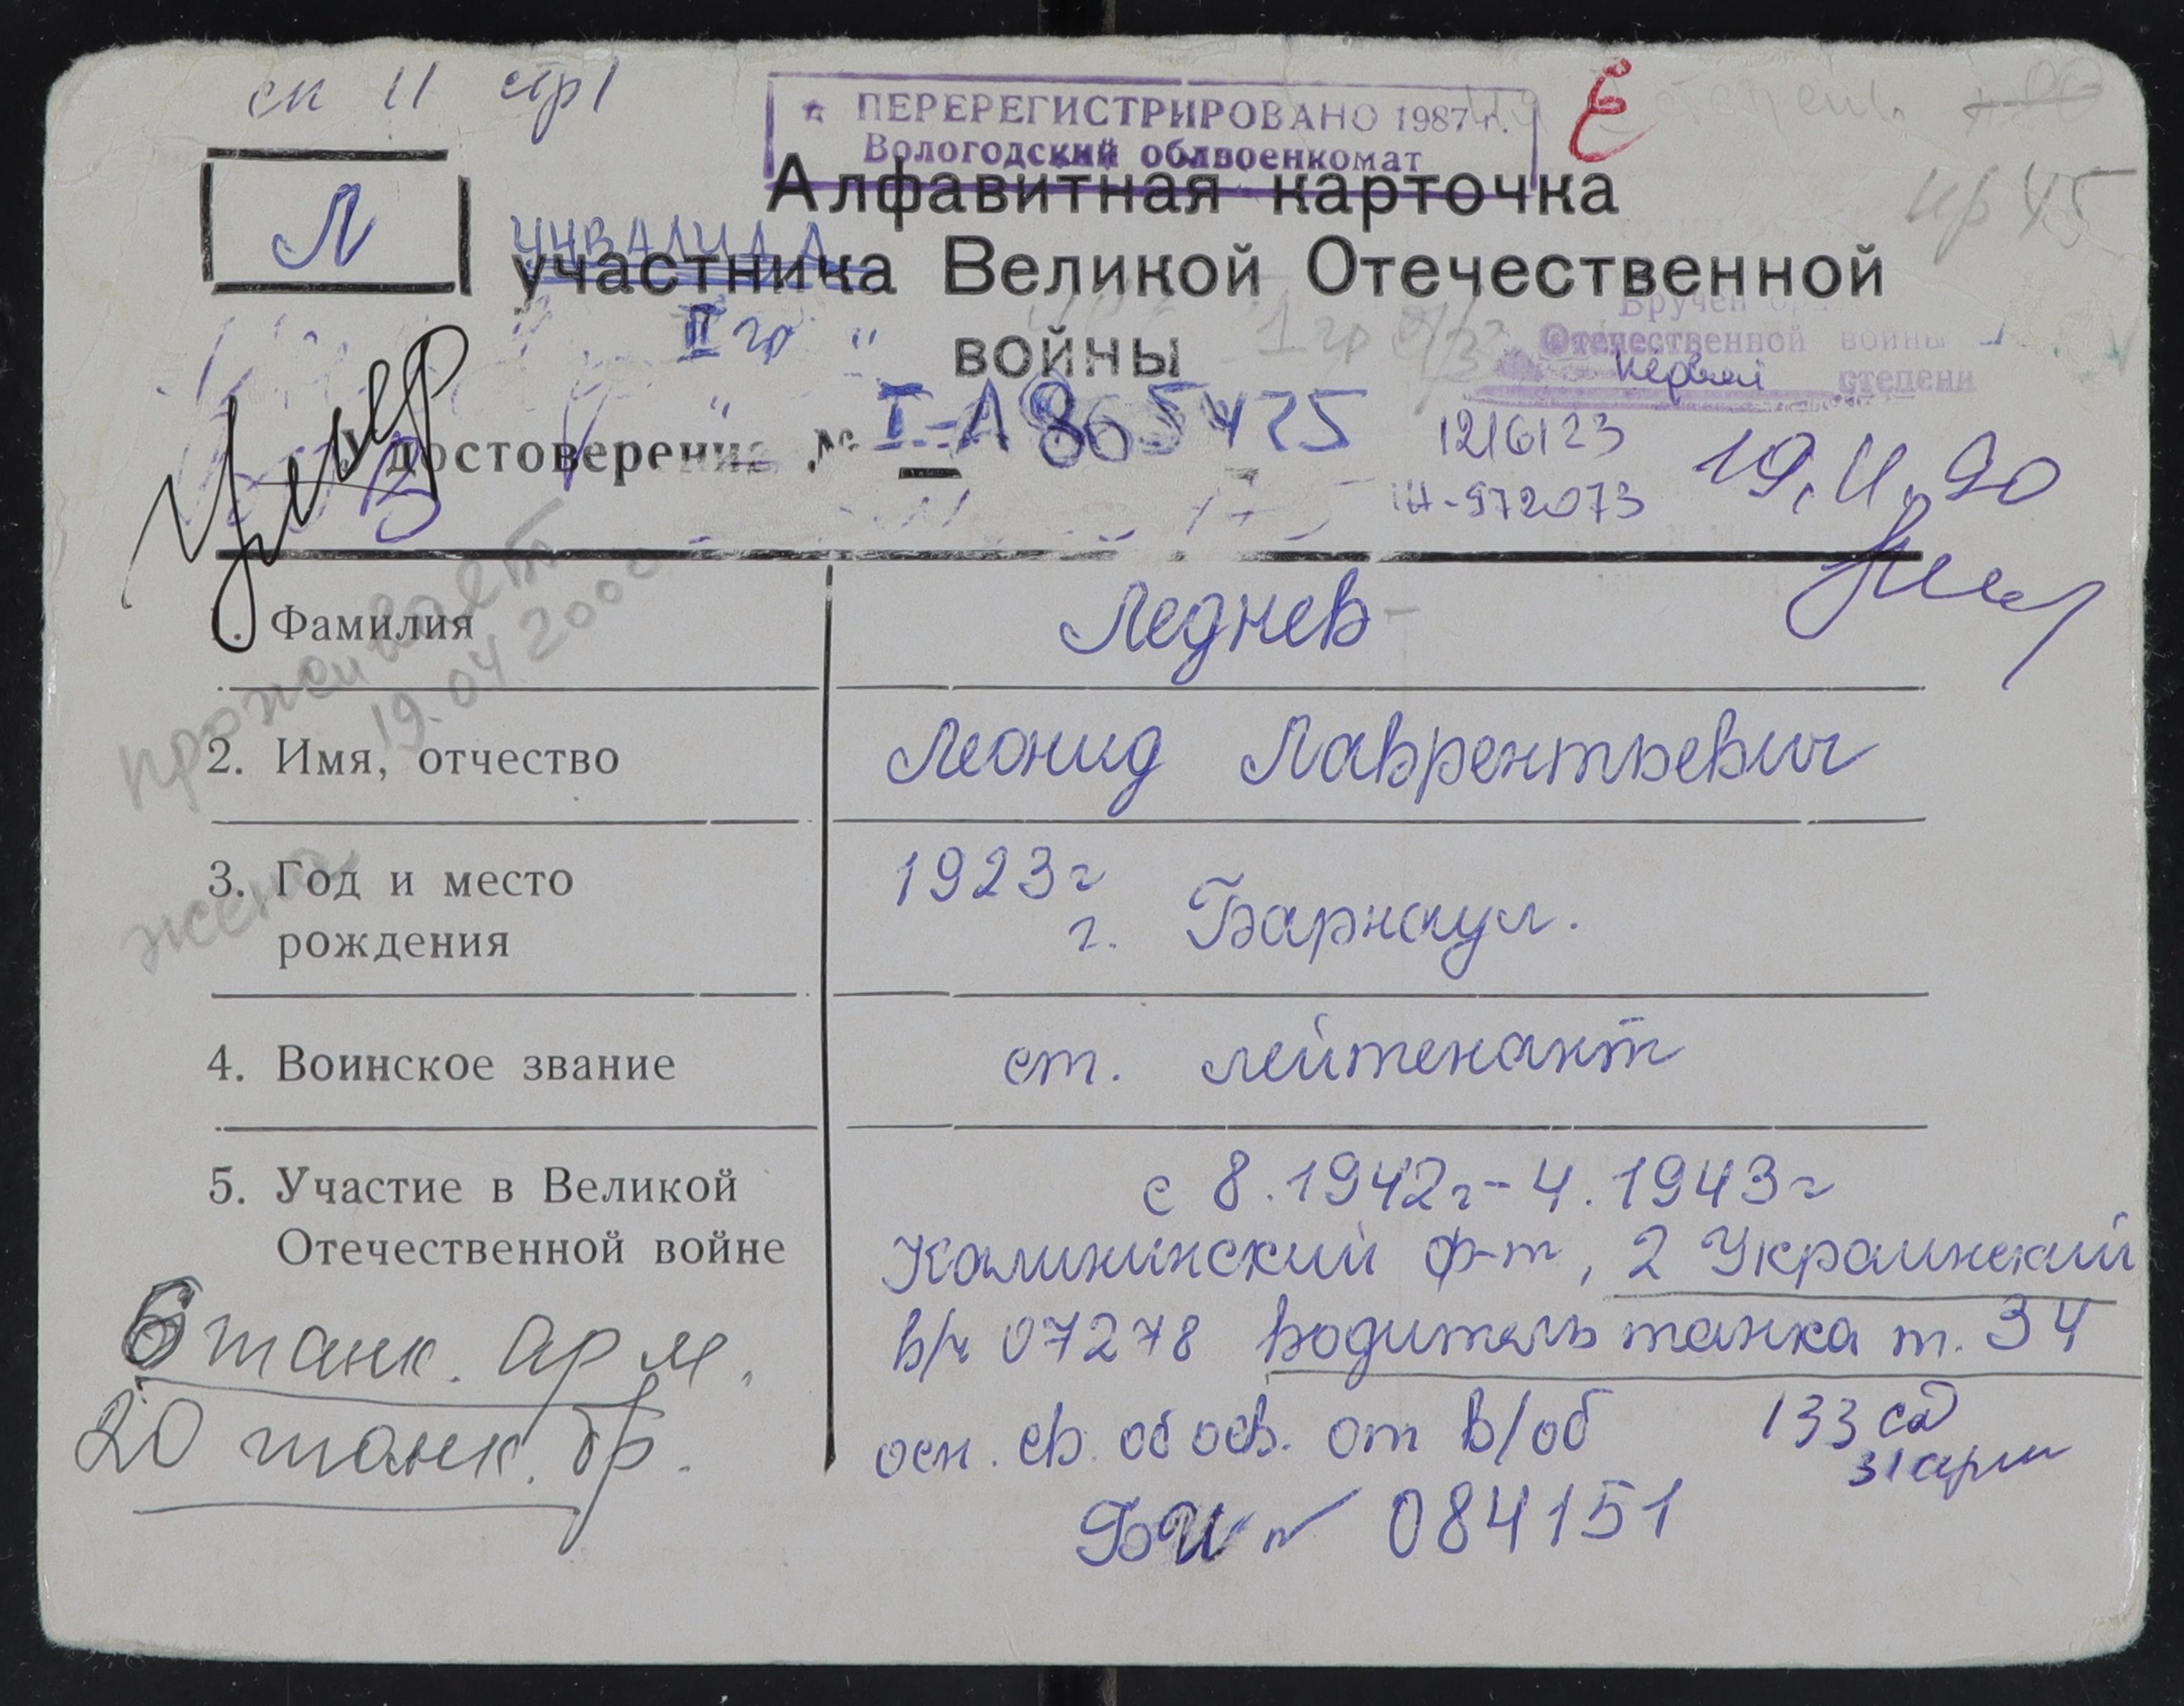 сп 11 стр 1
* ПЕРЕРЕГИСТРИРОВАНО 1987 г.
Вологодский облвоенкомат
Ё
степень
пр 45
Л
Алфавитная карточка
инвалида
участника Великой Отечественной
II гр "
войны
1 гр
Вручен
Отечественной войны
первой степени
Умер
Удостоверение № I-А 865425
1216123
972073
19.11.90
проживает
19.04.2000
1. Фамилия
Леднев
2. Имя, отчество
Леонид Лаврентьевич
жена
3. Год и место рождения
1923 г
г. Барнаул.
4. Воинское звание
ст. лейтенант
5. Участие в Великой
Отечественной войне
с 8.1942 г - 4.1943 г
Калининский ф-т, 2 Украинский
в/ч 07278 водитель танка т. 34
осн. св. об осв. от в/об
133 сд
31 арм
БИ № 084151
6 танк. арм.
20 танк. бр.